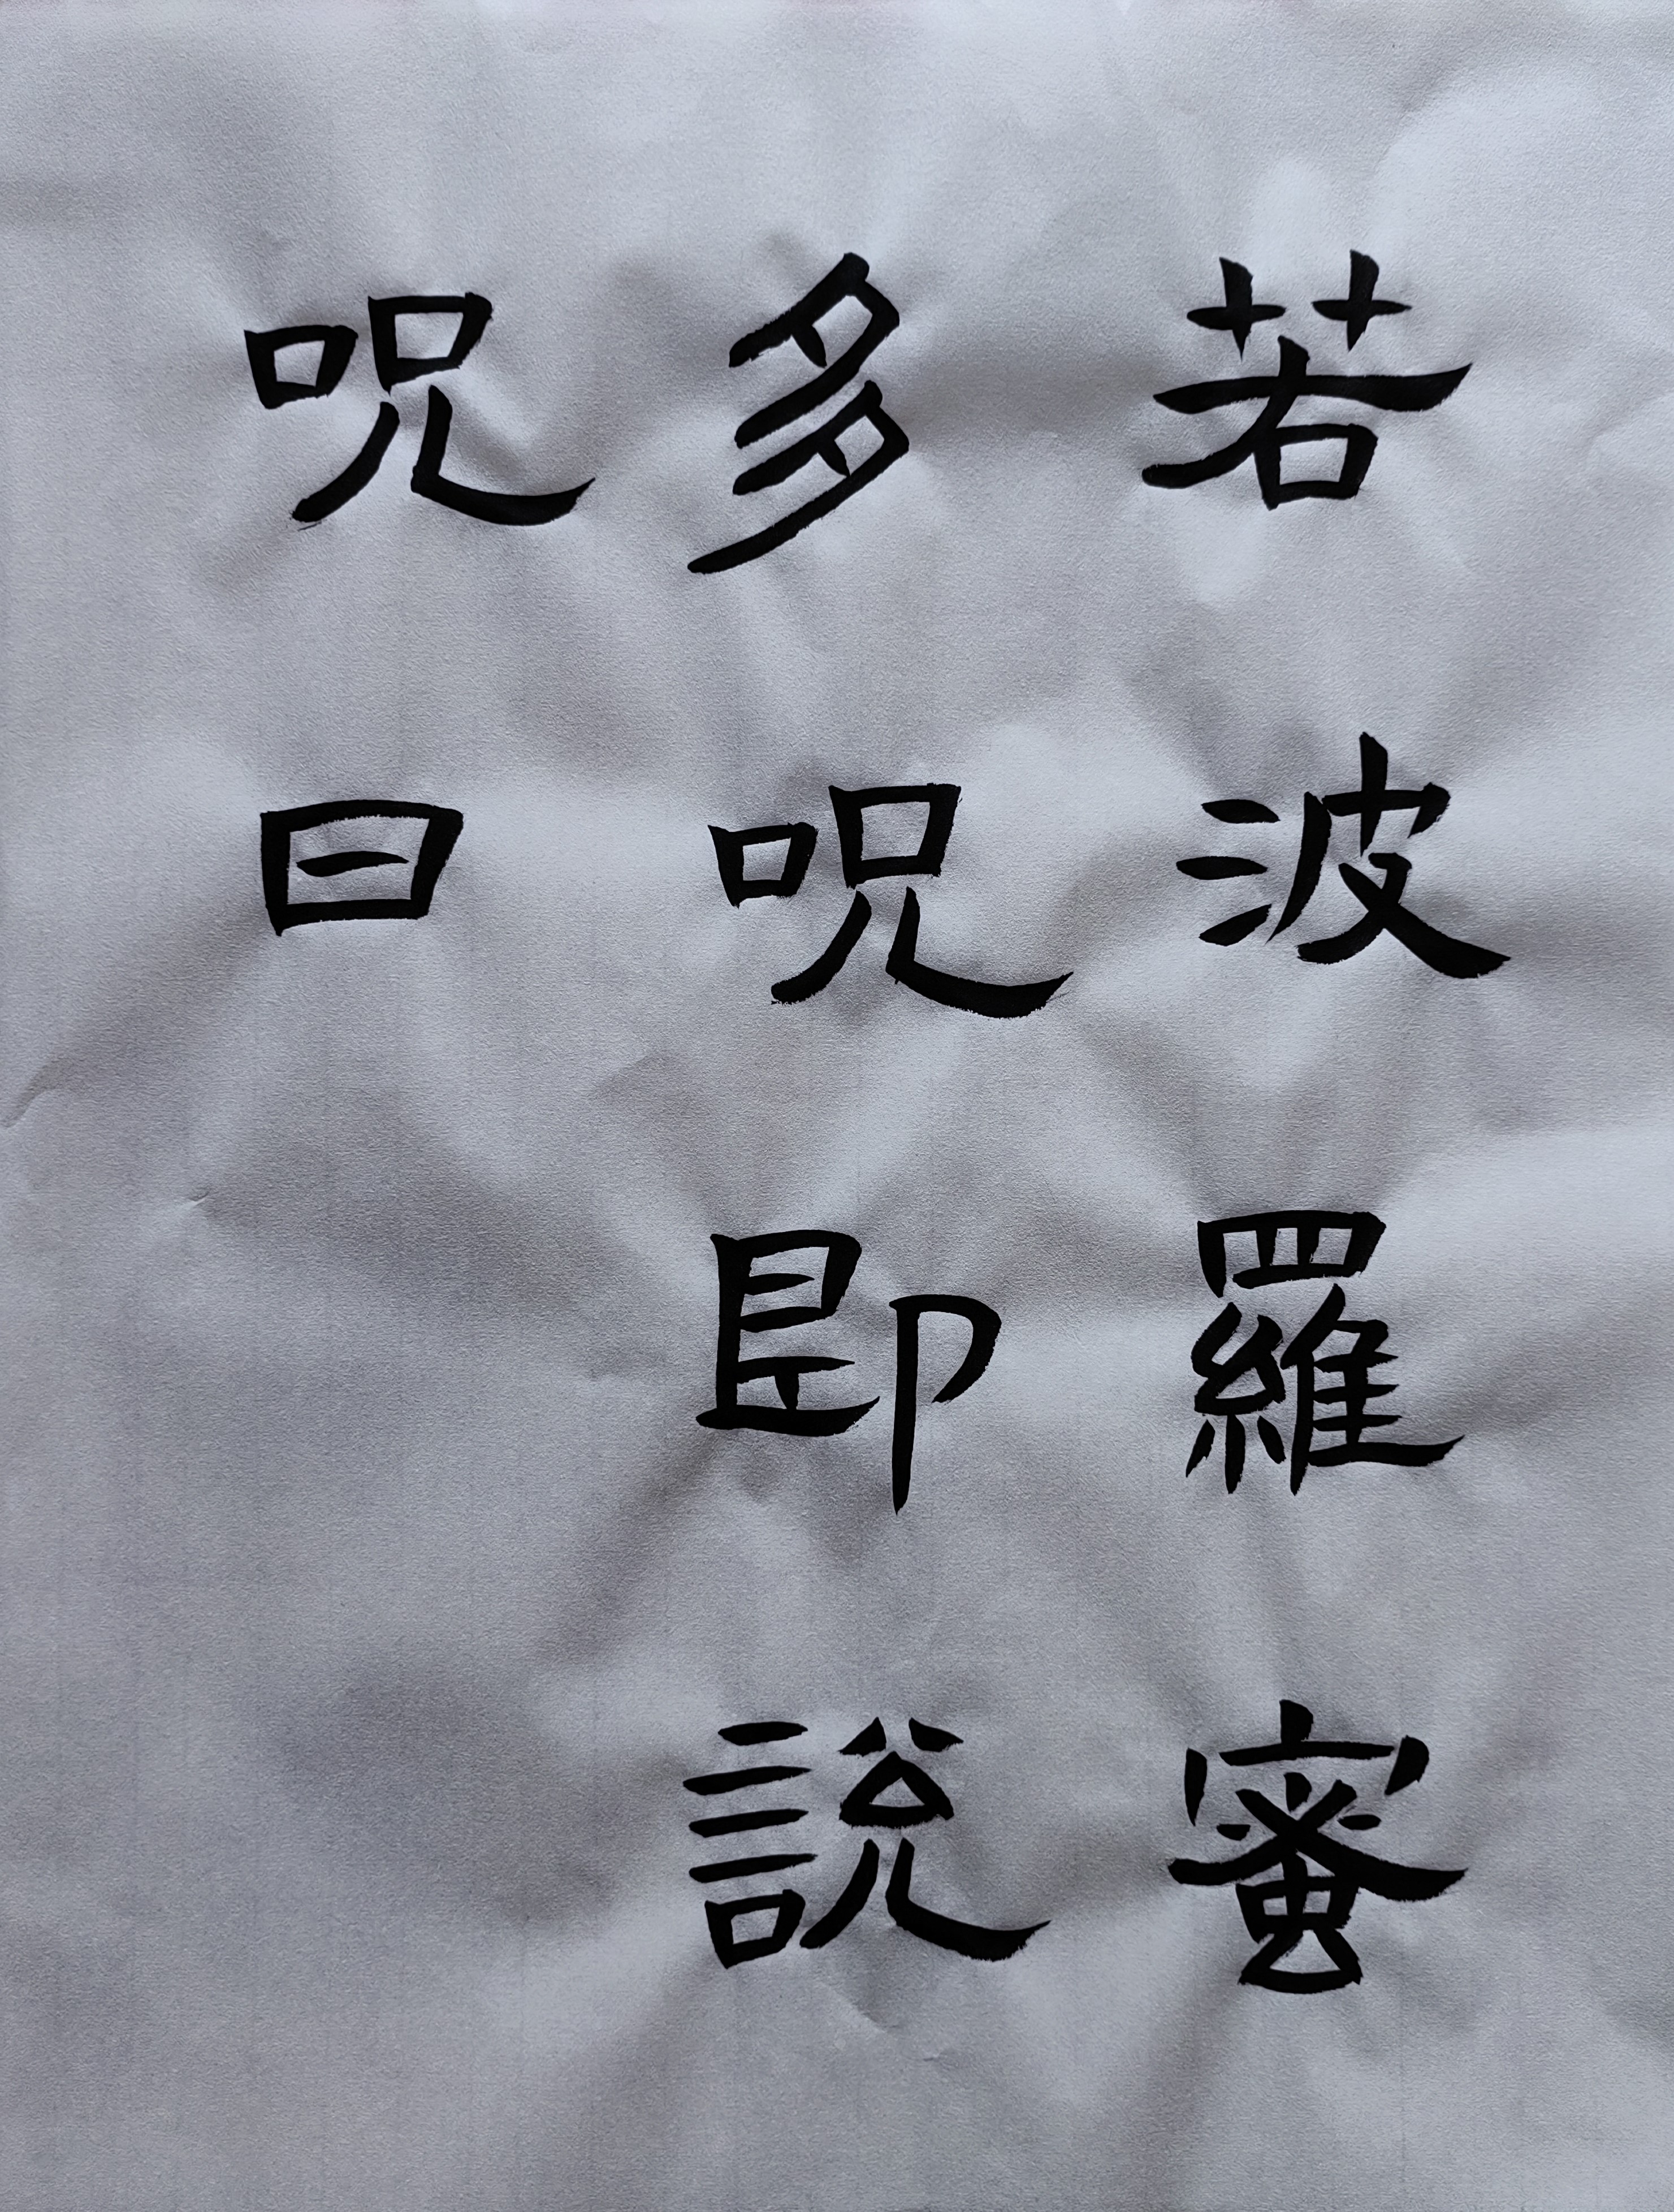 若波羅蜜
多呪即說
呪曰